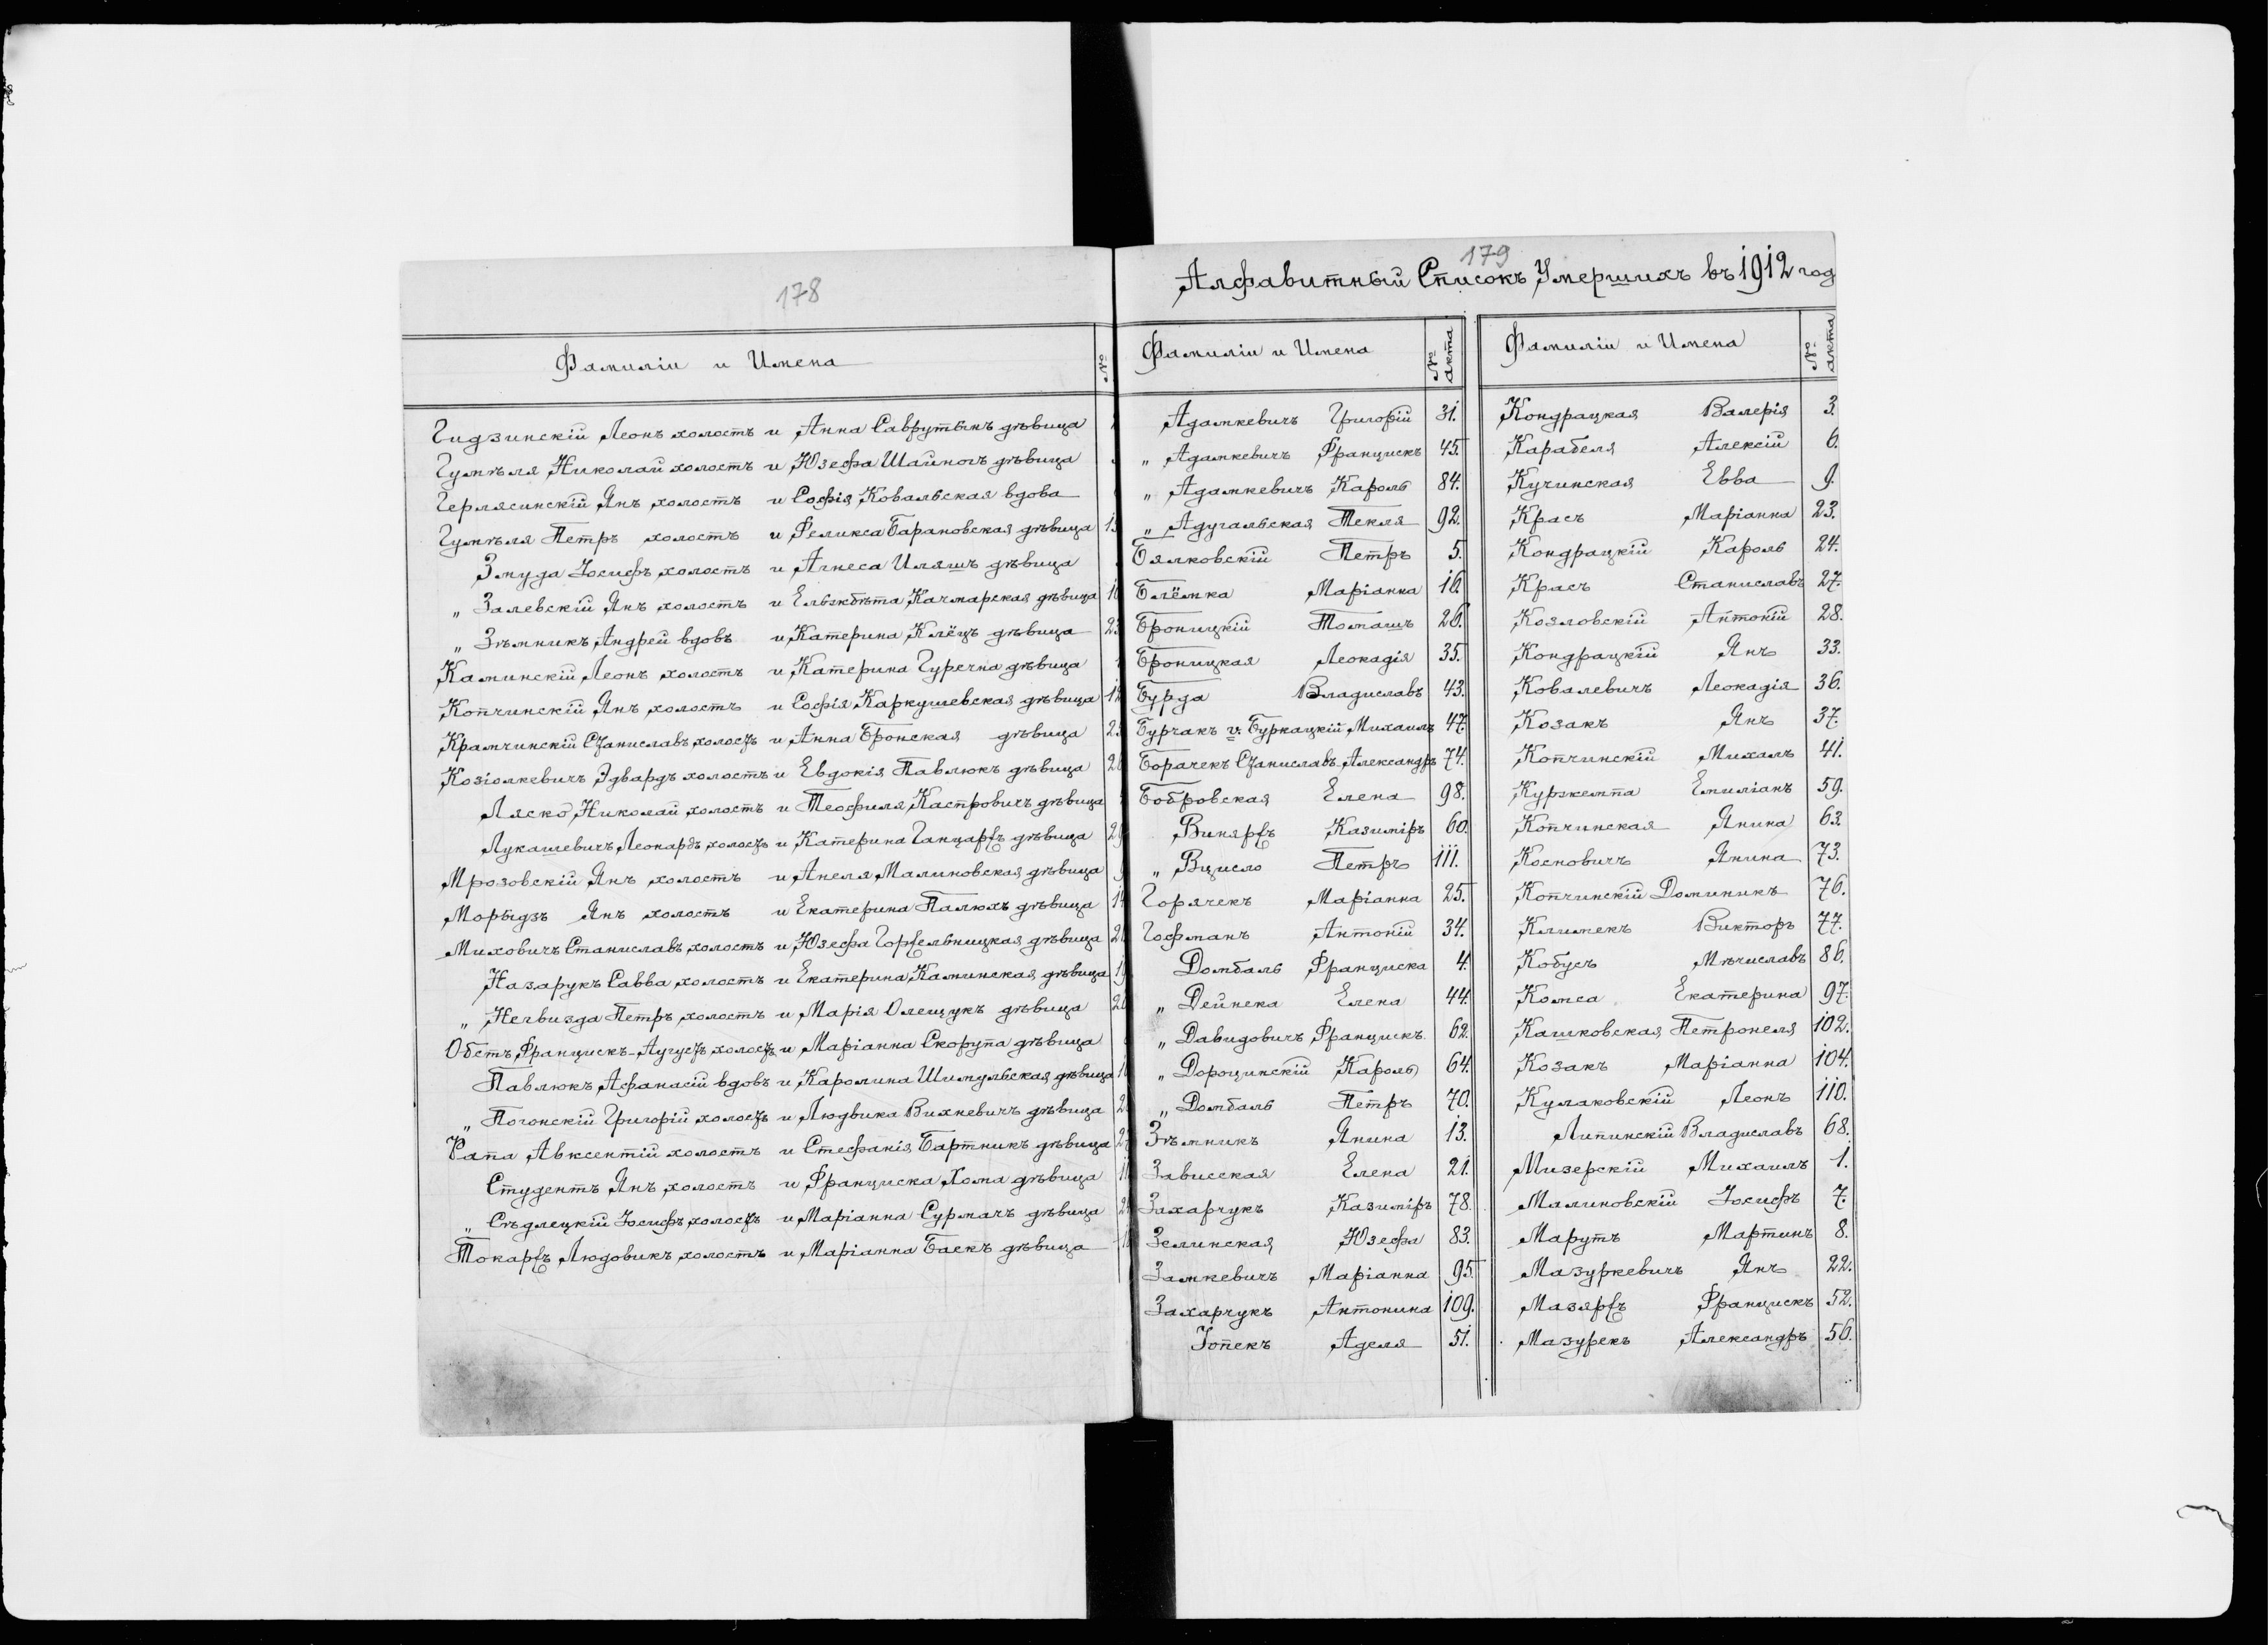 178
Фамилiи и Имена
№
Гидзинскiй Леонъ холостъ и Анна Саврутынъ дѣвица
Гумѣля Николай холостъ и Юзефа Шайногъ дѣвица
Герлясинскiй Янъ холостъ и Софiя Ковальская вдова
Гумѣля Петръ холостъ и Феликса Барановская дѣвица
Змуда Iосифъ холостъ и Агнеса Иляшъ дѣвица
„ Залевскiй Янъ холостъ и Ельжбѣта Качмарская дѣвица
„ Зѣмникъ Андрей вдовъ и Катерина Клёцъ дѣвица
Каминскiй Леонъ холостъ и Катерина Гуречна дѣвица
Копчинскiй Янъ холостъ и Софiя Каркушевская дѣвица
Крамчинскiй Станиславъ холостъ и Анна Бронская дѣвица
Козiолкевичъ Эдвардъ холостъ и Евдокiя Павлюкъ дѣвица
Ляско Николай холостъ и Теофиля Каспровичъ дѣвица
Лукашевичъ Леонардъ холостъ и Катерина Ганцаржъ дѣвица
Мрозовскiй Янъ холостъ и Анеля Малиновская дѣвица
Морыдзъ Янъ холостъ и Екатерина Палюхъ дѣвица
Миховичъ Станиславъ холостъ и Юзефа Горжельницкая дѣвица
Назарукъ Савва холостъ и Екатерина Каминская дѣвица
„ Негвизда Петръ холостъ и Марiя Олещукъ дѣвица
Обстъ Францискъ-Аугустъ холостъ и Марiанна Скорупа дѣвица
Павлюкъ Афанасiй вдовъ и Каролина Шимульская дѣвица
„ Погонскiй Григорiй холостъ и Людвика Вихневичъ дѣвица
Рапа Авксентiй холостъ и Стефанiя Бартникъ дѣвица
Студентъ Янъ холостъ и Франциска Хома дѣвица
„ Сѣдлецкiй Iосифъ холостъ и Марiанна Сурмачъ дѣвица
Токаржъ Людовикъ холостъ и Марiанна Баекъ дѣвица
179
Алфавитный Списокъ Умершихъ въ 1912 год
Фамилiи и Имена
№ акта
Адамкевичъ Григорiй 31.
„ Адамкевичъ Францискъ 45.
„ Адамкевичъ Кароль 84.
„ Адугальская Текля 92.
Бялковскiй Петръ 5.
Блёмка Марiанна 16.
Броницкiй Томашъ 26.
Броницкая Леокадiя 35.
Бурда Владиславъ 43.
Бурчакъ v. Буркацкiй Михаилъ 47.
Борачекъ Станиславъ Александръ 74.
Бобровская Елена 98.
Виняржъ Казимiръ 60.
„ Вцисло Петръ 111.
Горячекъ Марiанна 25.
Гофманъ Антонiй 34.
Домбаль Франциска 4.
„ Дейнека Елена 44.
„ Давидовичъ Францискъ 62.
„ Дорощинскiй Кароль 64.
„ Домбаль Петръ 70.
Зѣмникъ Янина 13.
Зависская Елена 21.
Захарчукъ Казимiръ 78.
Зелинская Юзефа 83.
Замкевичъ Марiанна 95.
Захарчукъ Антонина 109.
Iопекъ Аделя 51.
Фамилiи и Имена
№ акта
Кондрацкая Валерiя 3.
Карабеля Алексiй 6.
Кучинская Евва 9.
Красъ Марiанна 23.
Кондрацкiй Кароль 24.
Красъ Станиславъ 27.
Козловскiй Антонiй 28.
Кондрацкiй Янъ 33.
Ковалевичъ Леокадiя 36.
Козакъ Янъ 37.
Копчинскiй Михалъ 41.
Куржемпа Емилiанъ 59.
Копчинская Янина 63.
Косновичъ Янина 73.
Копчинскiй Доминикъ 76.
Климекъ Викторъ 77.
Кобусъ Мѣчиславъ 86.
Комса Екатерина 97.
Кашковская Петронеля 102.
Козакъ Марiанна 104.
Кулаковскiй Леонъ 110.
Липинскiй Владиславъ 68.
Мизерскiй Михаилъ 1.
Малиновскiй Iосифъ 7.
Марутъ Мартинъ 8.
Мазуркевичъ Янъ 22.
Мазяржъ Францискъ 52.
Мазурекъ Александръ 56.